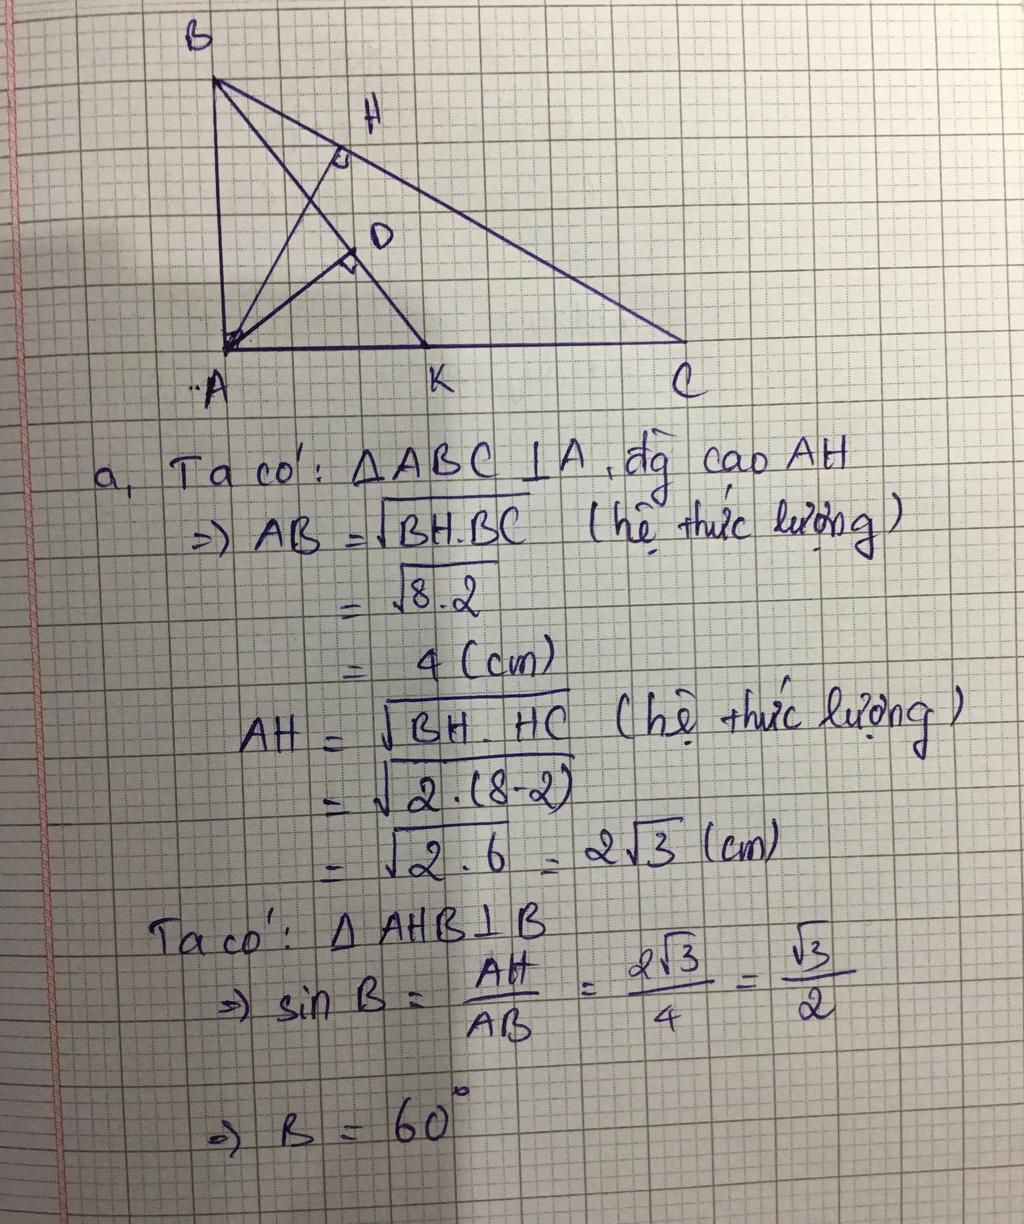 B
H
D
A K C
a, Ta có: ΔABC ⊥ A, đg̀ cao AH
=> AB = √BH.BC (hệ thức lượng)
= √8.2
= 4 (cm)
AH = √BH. HC (hệ thức lượng)
= √2.(8-2)
= √2.6 = 2√3 (cm)
Ta có: Δ AHB ⊥ B
=> sin B = AH/AB = 2√3/4 = √3/2
=> B = 60°